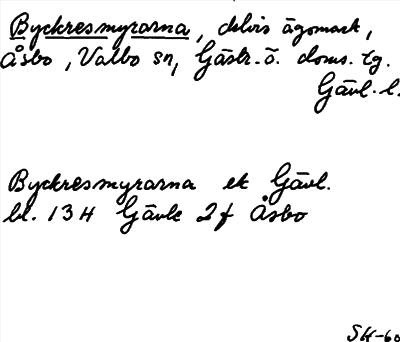 Byckresmyrarna, delvis ägomark,
Åsbo, Valbo sn, Gästr.ö. doms. tg.
Gävl. l.
Byckresmyrarna ek Gävl.
bl. 13 H Gävle 2f Åsbo
SH-60